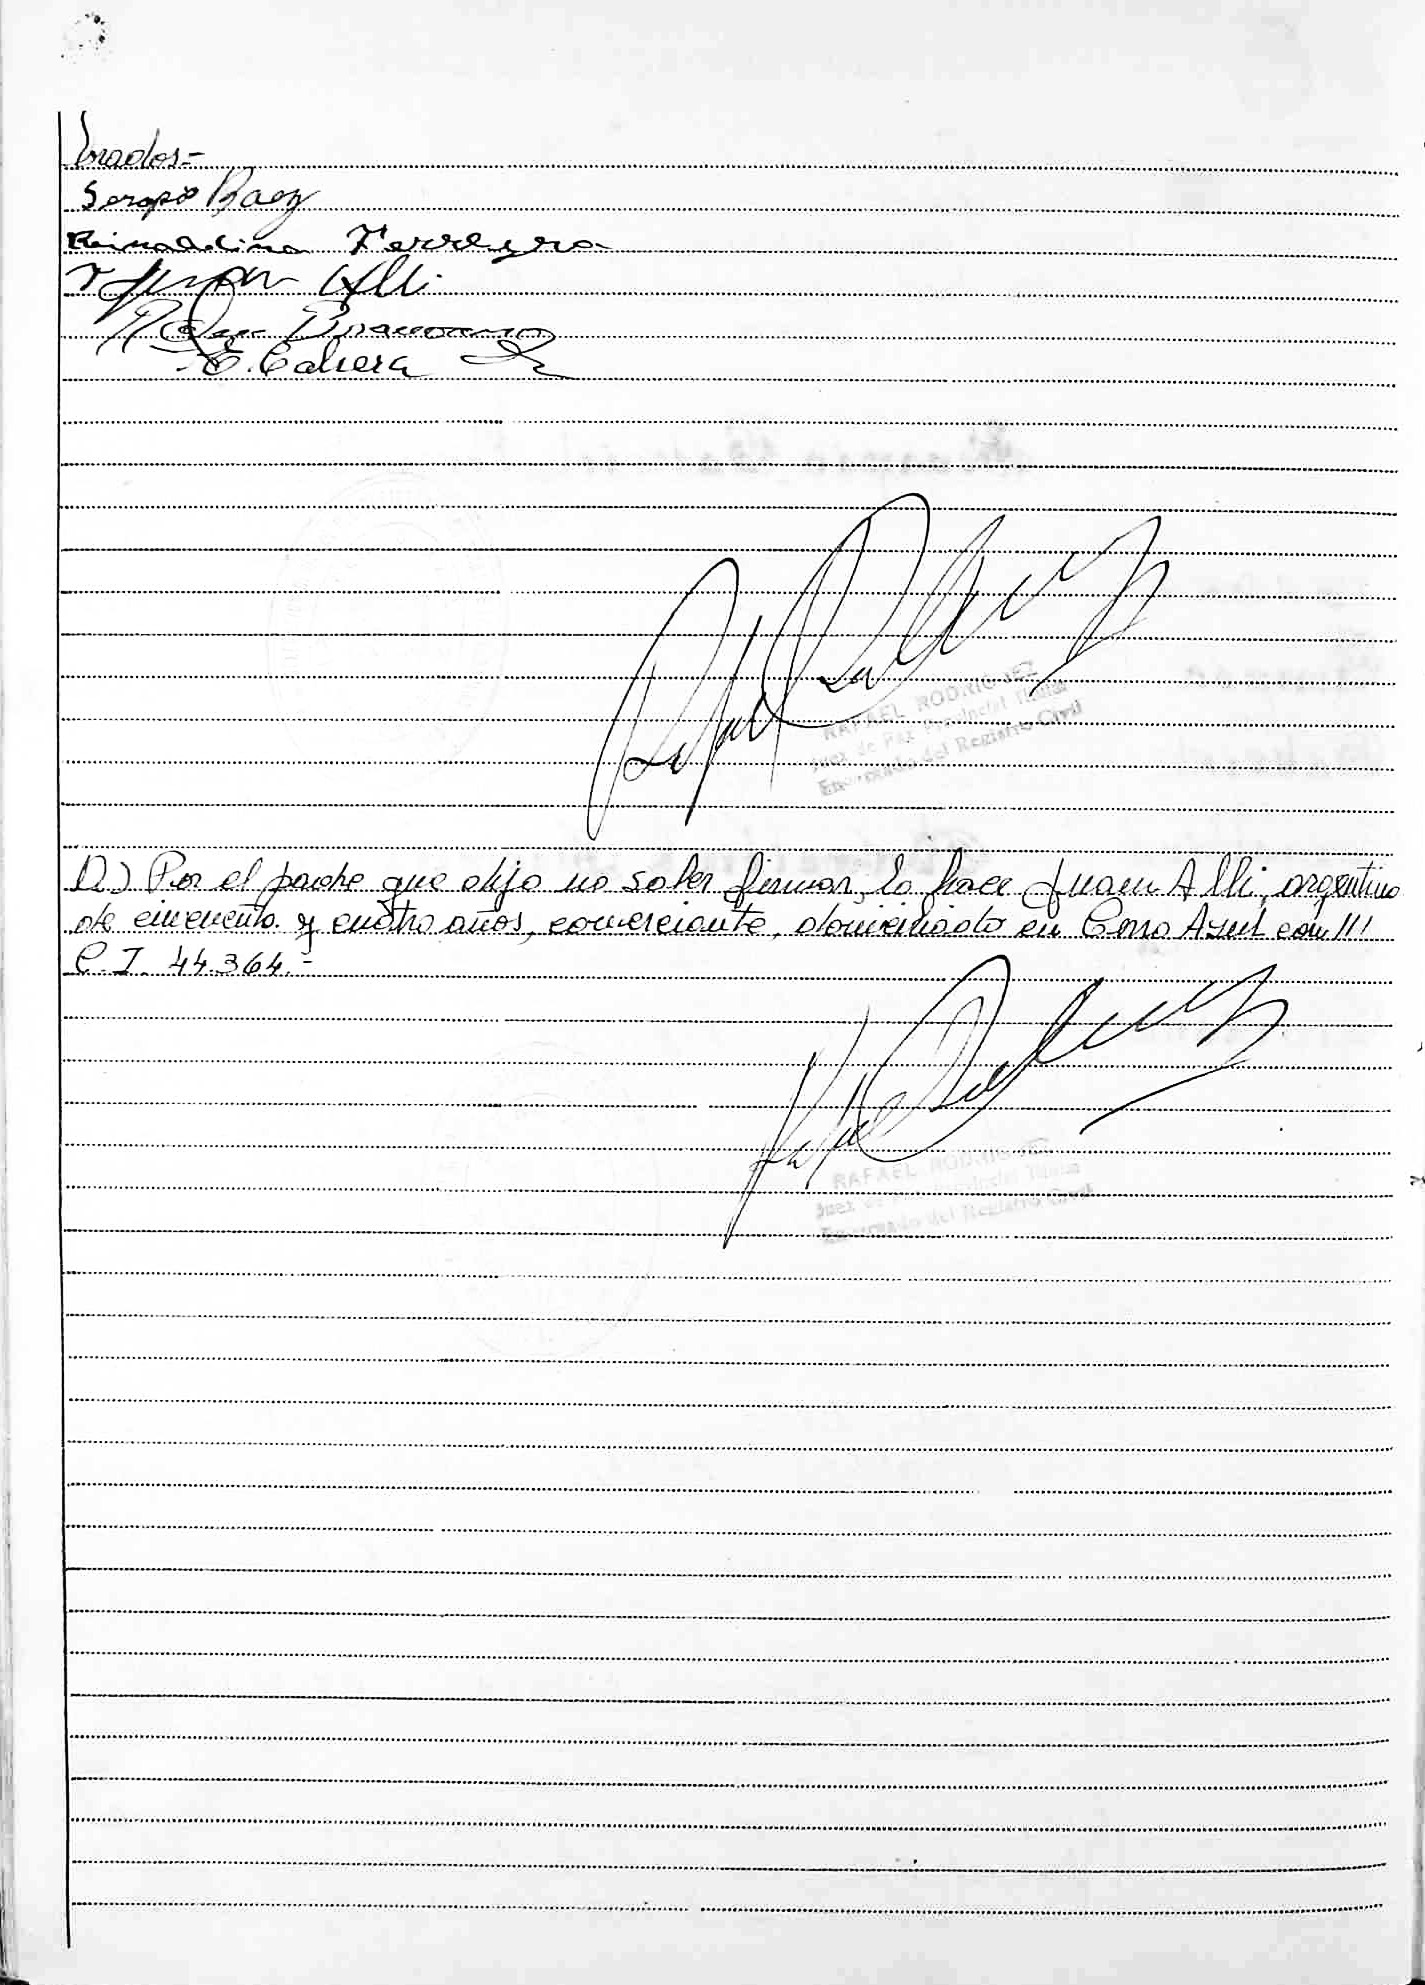 brados=
Serapio Baez
Reinaldina Ferreyra
Juan Alli
E. Cabrera
RAFAEL RODRIGUEZ
Juez de Paz Provincial Titular
Encargado del Registro Civil
D) Por el padre que dijo no saber firmar, lo hace Juan Alli, argentino
de cincuenta y cuatro años, comerciante, domiciliado en Cerro Azul con ///
C.I. 44.364.=
RAFAEL RODRIGUEZ
Juez de Paz Provincial Titular
Encargado del Registro Civil